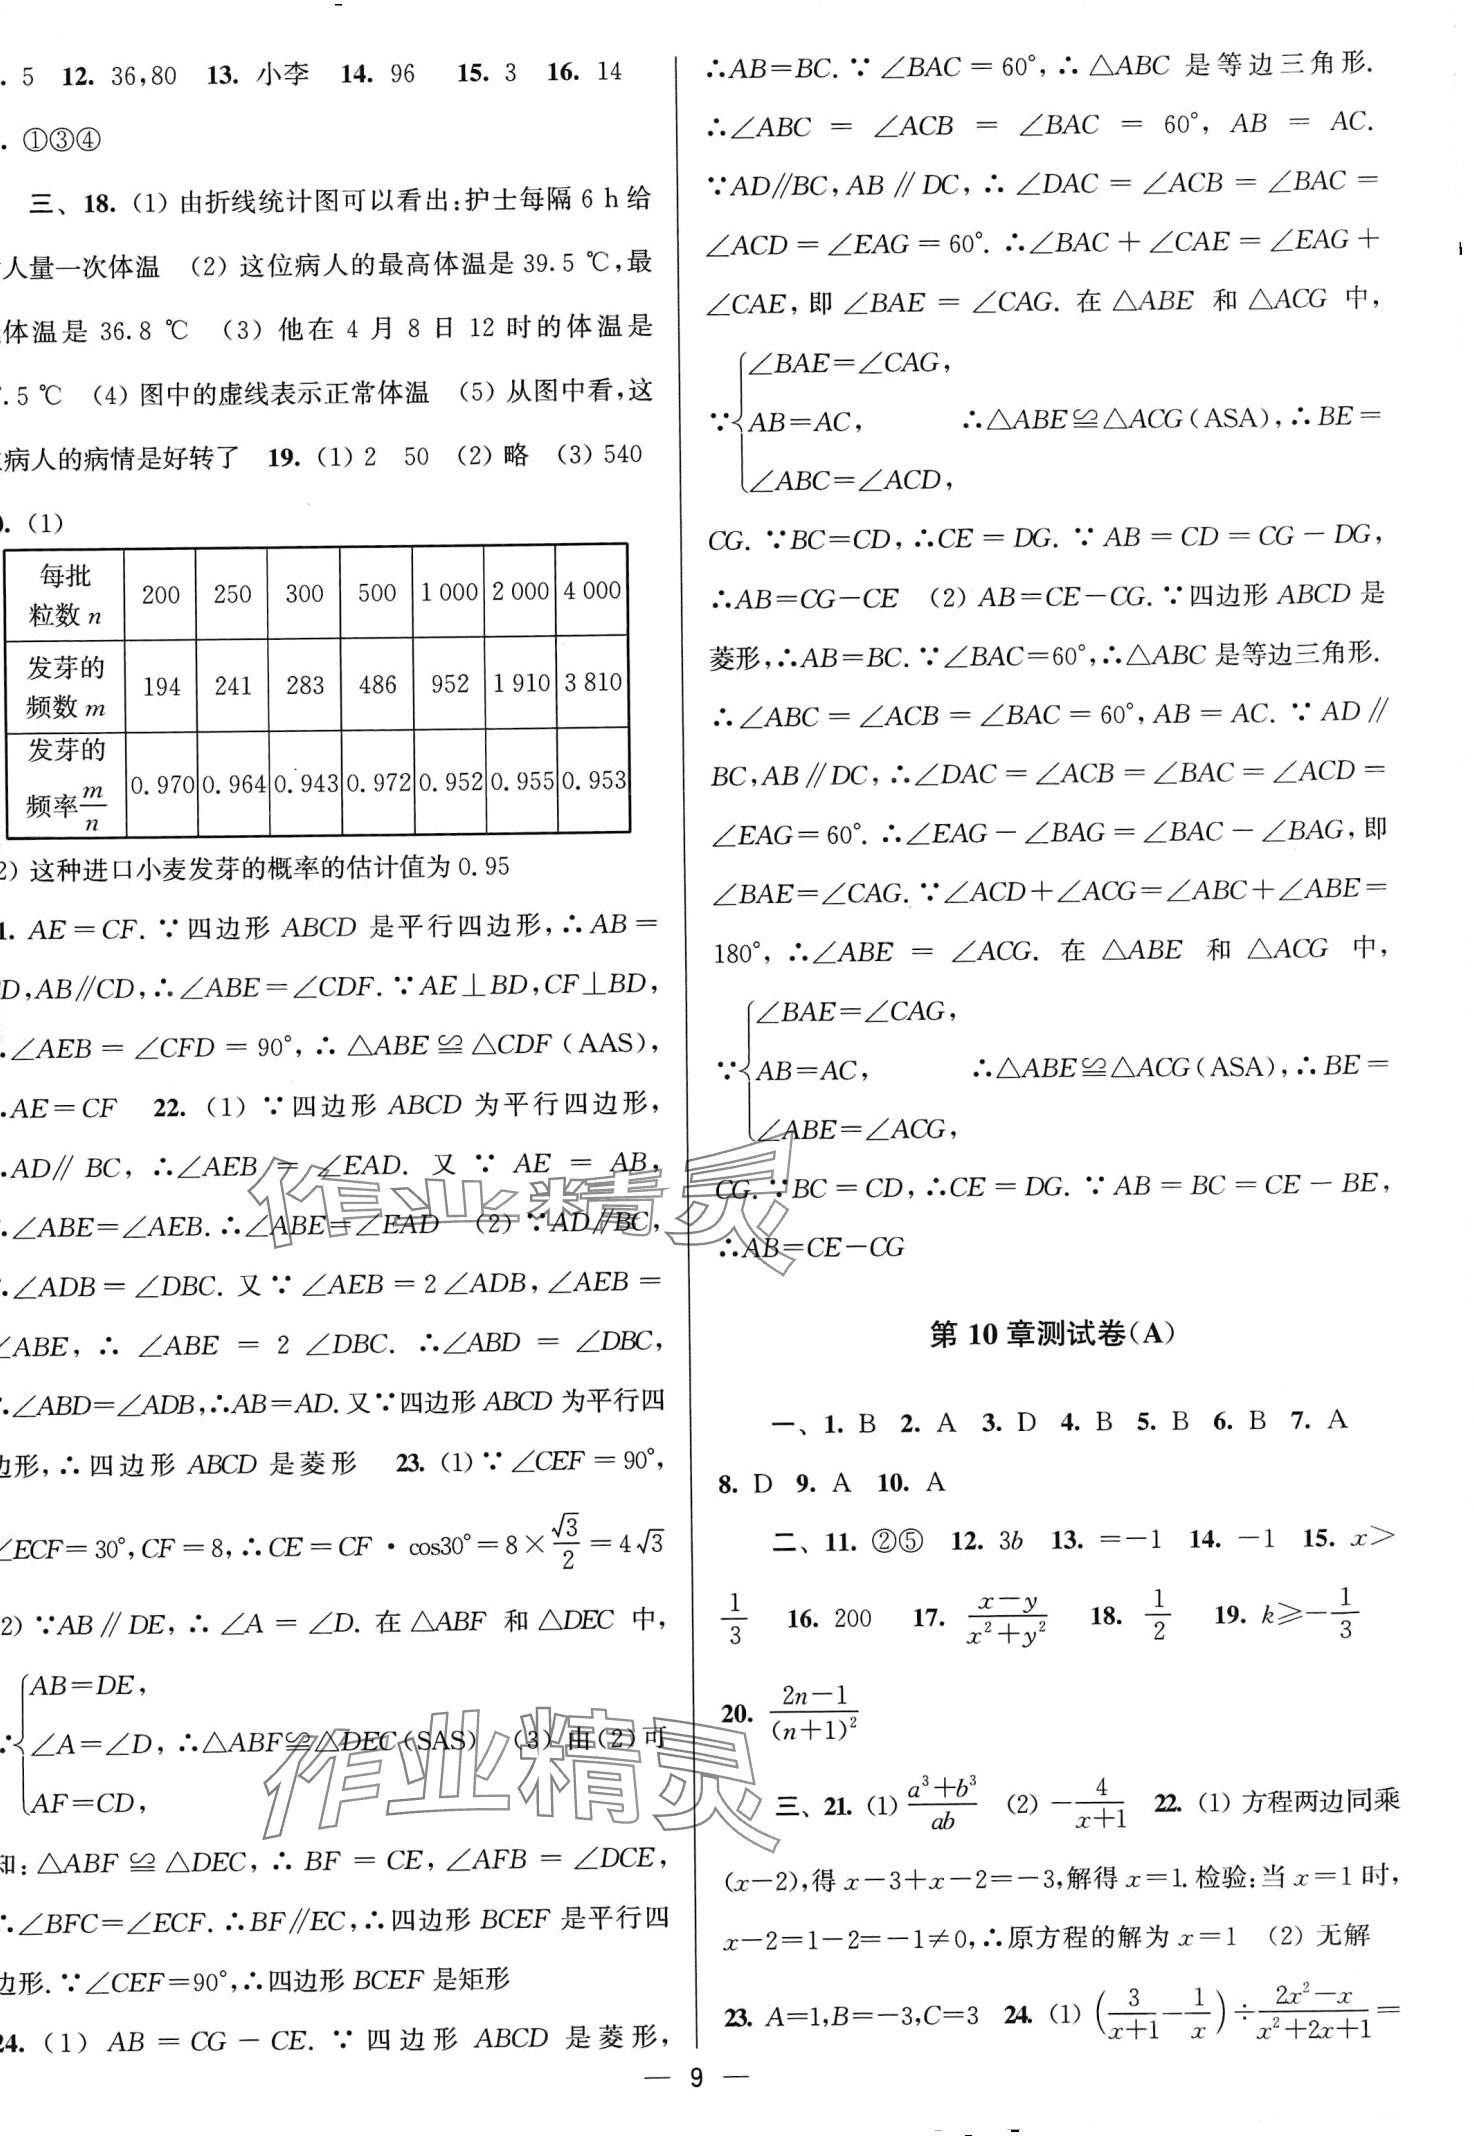 . 5 12. 36,80 13. 小李 14. 96 15. 3 16. 14
. ①③④
三、18. (1) 由折线统计图可以看出:护士每隔 6 h 给
人量一次体温 (2) 这位病人的最高体温是 39.5 ℃,最
体温是 36.8 ℃ (3) 他在 4 月 8 日 12 时的体温是
.5 ℃ (4) 图中的虚线表示正常体温 (5) 从图中看,这
病人的病情是好转了 19. (1) 2 50 (2) 略 (3) 540
. (1)
每批粒数 n 200 250 300 500 1 000 2 000 4 000
发芽的频数 m 194 241 283 486 952 1 910 3 810
发芽的频率 m/n 0.970 0.964 0.943 0.972 0.952 0.955 0.953
2) 这种进口小麦发芽的概率的估计值为 0.95
1. AE=CF. ∵四边形 ABCD 是平行四边形,∴AB=
D,AB∥CD,∴∠ABE=∠CDF. ∵AE⊥BD,CF⊥BD,
∠AEB=∠CFD=90°,∴△ABE≌△CDF(AAS),
AE=CF 22. (1) ∵四边形 ABCD 为平行四边形,
AD∥BC,∴∠AEB=∠EAD. 又∵AE=AB,
∠ABE=∠AEB. ∴∠ABE=∠EAD (2) ∵AD∥BC,
∠ADB=∠DBC. 又∵∠AEB=2∠ADB,∠AEB=
∠ABE,∴∠ABE=2∠DBC. ∴∠ABD=∠DBC,
∠ABD=∠ADB,∴AB=AD. 又∵四边形 ABCD 为平行四
边形,∴四边形 ABCD 是菱形 23. (1) ∵∠CEF=90°,
∠ECF=30°,CF=8,∴CE=CF·cos30°=8×√3/2=4√3
2) ∵AB∥DE,∴∠A=∠D. 在△ABF 和△DEC 中,
AB=DE,
∠A=∠D,∴△ABF≌△DEC(SAS) (3) 由(2)可
AF=CD,
知:△ABF≌△DEC,∴BF=CE,∠AFB=∠DCE,
∠BFC=∠ECF. ∴BF∥EC,∴四边形 BCEF 是平行四
边形. ∵∠CEF=90°,∴四边形 BCEF 是矩形
24. (1) AB=CG-CE. ∵四边形 ABCD 是菱形,
∴AB=BC. ∵∠BAC=60°,∴△ABC 是等边三角形.
∴∠ABC=∠ACB=∠BAC=60°,AB=AC.
∵AD∥BC,AB∥DC,∴∠DAC=∠ACB=∠BAC=
∠ACD=∠EAG=60°. ∴∠BAC+∠CAE=∠EAG+
∠CAE,即∠BAE=∠CAG. 在△ABE 和△ACG 中,
∠BAE=∠CAG,
∵ AB=AC, ∴△ABE≌△ACG(ASA),∴BE=
∠ABC=∠ACD,
CG. ∵BC=CD,∴CE=DG. ∵AB=CD=CG-DG,
∴AB=CG-CE (2) AB=CE-CG. ∵四边形 ABCD 是
菱形,∴AB=BC. ∵∠BAC=60°,∴△ABC 是等边三角形.
∴∠ABC=∠ACB=∠BAC=60°,AB=AC. ∵AD∥
BC,AB∥DC,∴∠DAC=∠ACB=∠BAC=∠ACD=
∠EAG=60°. ∴∠EAG-∠BAG=∠BAC-∠BAG,即
∠BAE=∠CAG. ∵∠ACD+∠ACG=∠ABC+∠ABE=
180°,∴∠ABE=∠ACG. 在△ABE 和△ACG 中,
∠BAE=∠CAG,
∵ AB=AC, ∴△ABE≌△ACG(ASA),∴BE=
∠ABE=∠ACG,
CG. ∵BC=CD,∴CE=DG. ∵AB=BC=CE-BE,
∴AB=CE-CG
第 10 章测试卷(A)
一、1. B 2. A 3. D 4. B 5. B 6. B 7. A
8. D 9. A 10. A
二、11. ②⑤ 12. 3b 13. =-1 14. -1 15. x>
1/3 16. 200 17. (x-y)/(x²+y²) 18. 1/2 19. k≥-1/3
20. (2n-1)/(n+1)²
三、21. (1) (a³+b³)/ab (2) -4/(x+1) 22. (1) 方程两边同乘
(x-2),得 x-3+x-2=-3,解得 x=1. 检验:当 x=1 时,
x-2=1-2=-1≠0,∴原方程的解为 x=1 (2) 无解
23. A=1,B=-3,C=3 24. (1) (3/(x+1)-1/x)÷(2x²-x)/(x²+2x+1)=
— 9 —
作业精灵
作业精灵